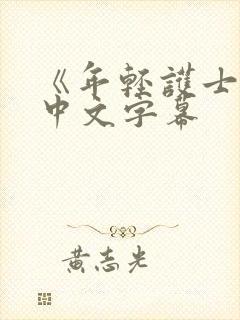 《年輕護士
中文字幕
黃志光